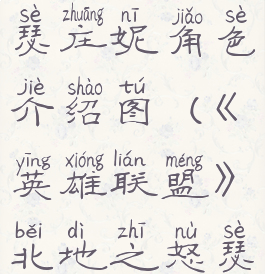 sè zhuāng nī jiǎo sè
瑟 庄 妮 角 色
jiè shào tú
介 绍 图 （《
yīng xióng lián méng
英 雄 联 盟》
běi dì zhī nù sè
北 地 之 怒 瑟